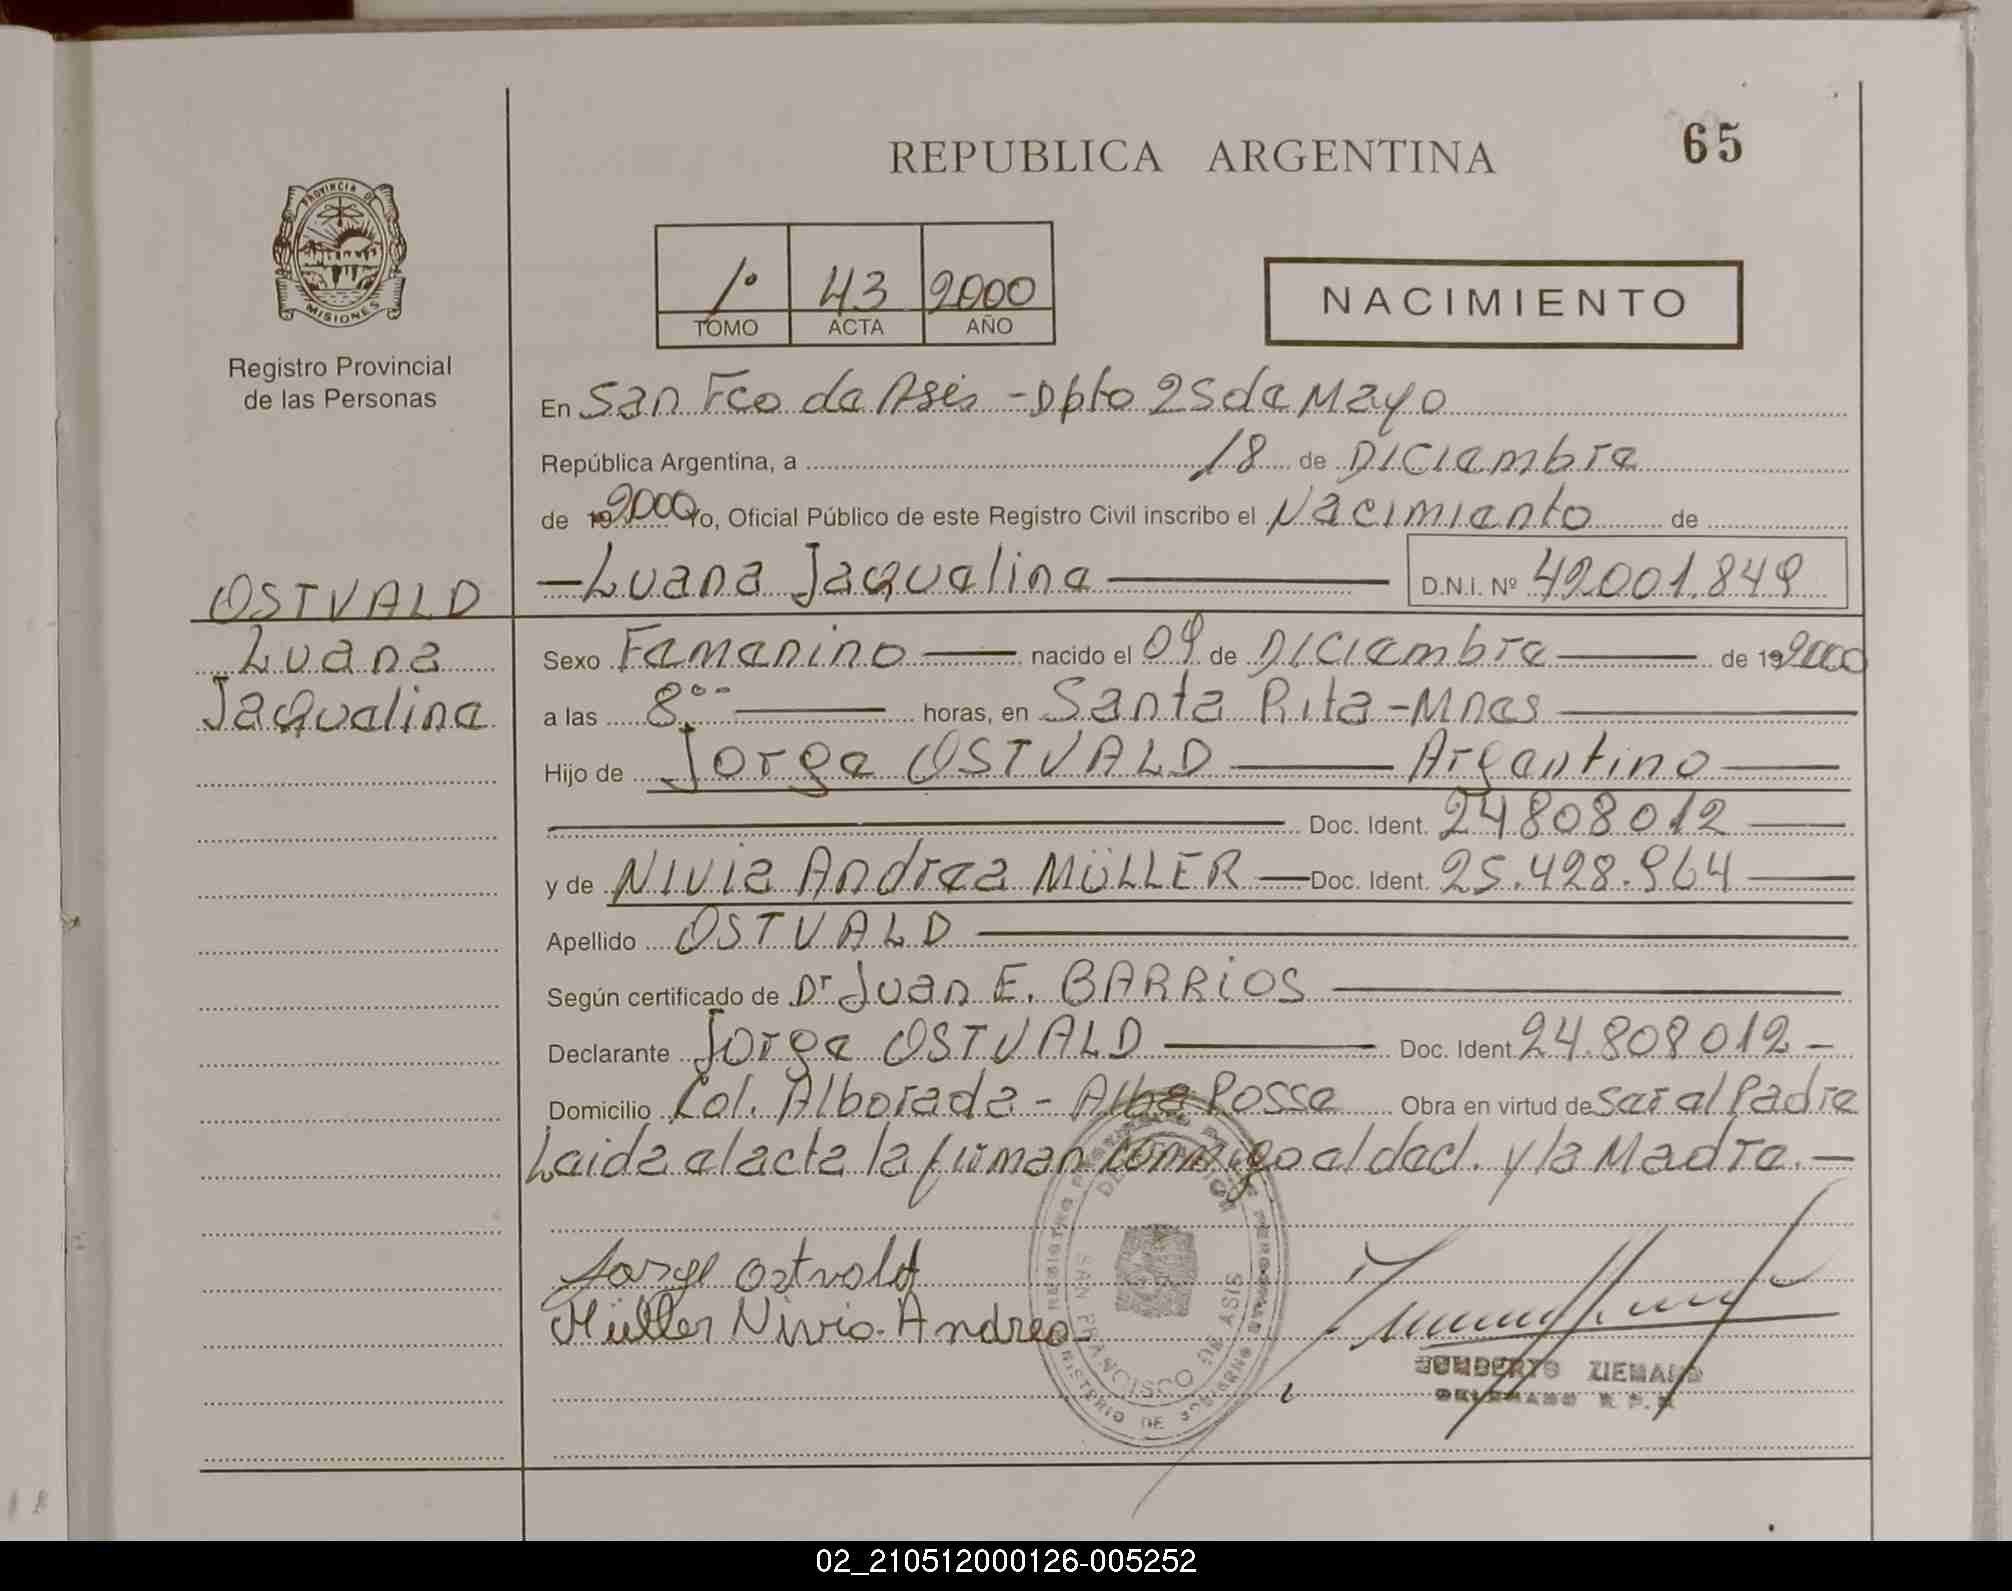 65
REPUBLICA ARGENTINA
PROVINCIA DE
MISIONES
Registro Provincial
de las Personas
1º 43 2000
TOMO ACTA AÑO
NACIMIENTO
En San Fco de Asis - Dpto 25 de Mayo
República Argentina, a 18 de Diciembre
de 19 2000 Yo, Oficial Público de este Registro Civil inscribo el Nacimiento de
- Luana Jaquelina D.N.I. Nº 42.001.849
OSTVALD
Luana
Jaquelina
Sexo Femenino nacido el 09 de Diciembre de 19 2000
a las 8°° horas, en Santa Rita - Mnes
Hijo de Jorge OSTVALD Argentino
Doc. Ident. 24808012
y de Nivia Andrea MÜLLER Doc. Ident. 25.428.964
Apellido OSTVALD
Según certificado de Dr Juan E. BARRiOS
Declarante Jorge OSTVALD Doc. Ident 24.808012 -
Domicilio Col. Alborada - Alba Posse Obra en virtud de ser el Padre
Leida el acta la firman conmigo el decl. y la Madre. -
Jorge Ostvald
Müller Nivia Andrea
SAN FRANCISCO DE ASIS
MINISTERIO DE GOBIERNO
HUMBERTO ZIEMANN
DELEGADO R.P.P.
02_210512000126-005252